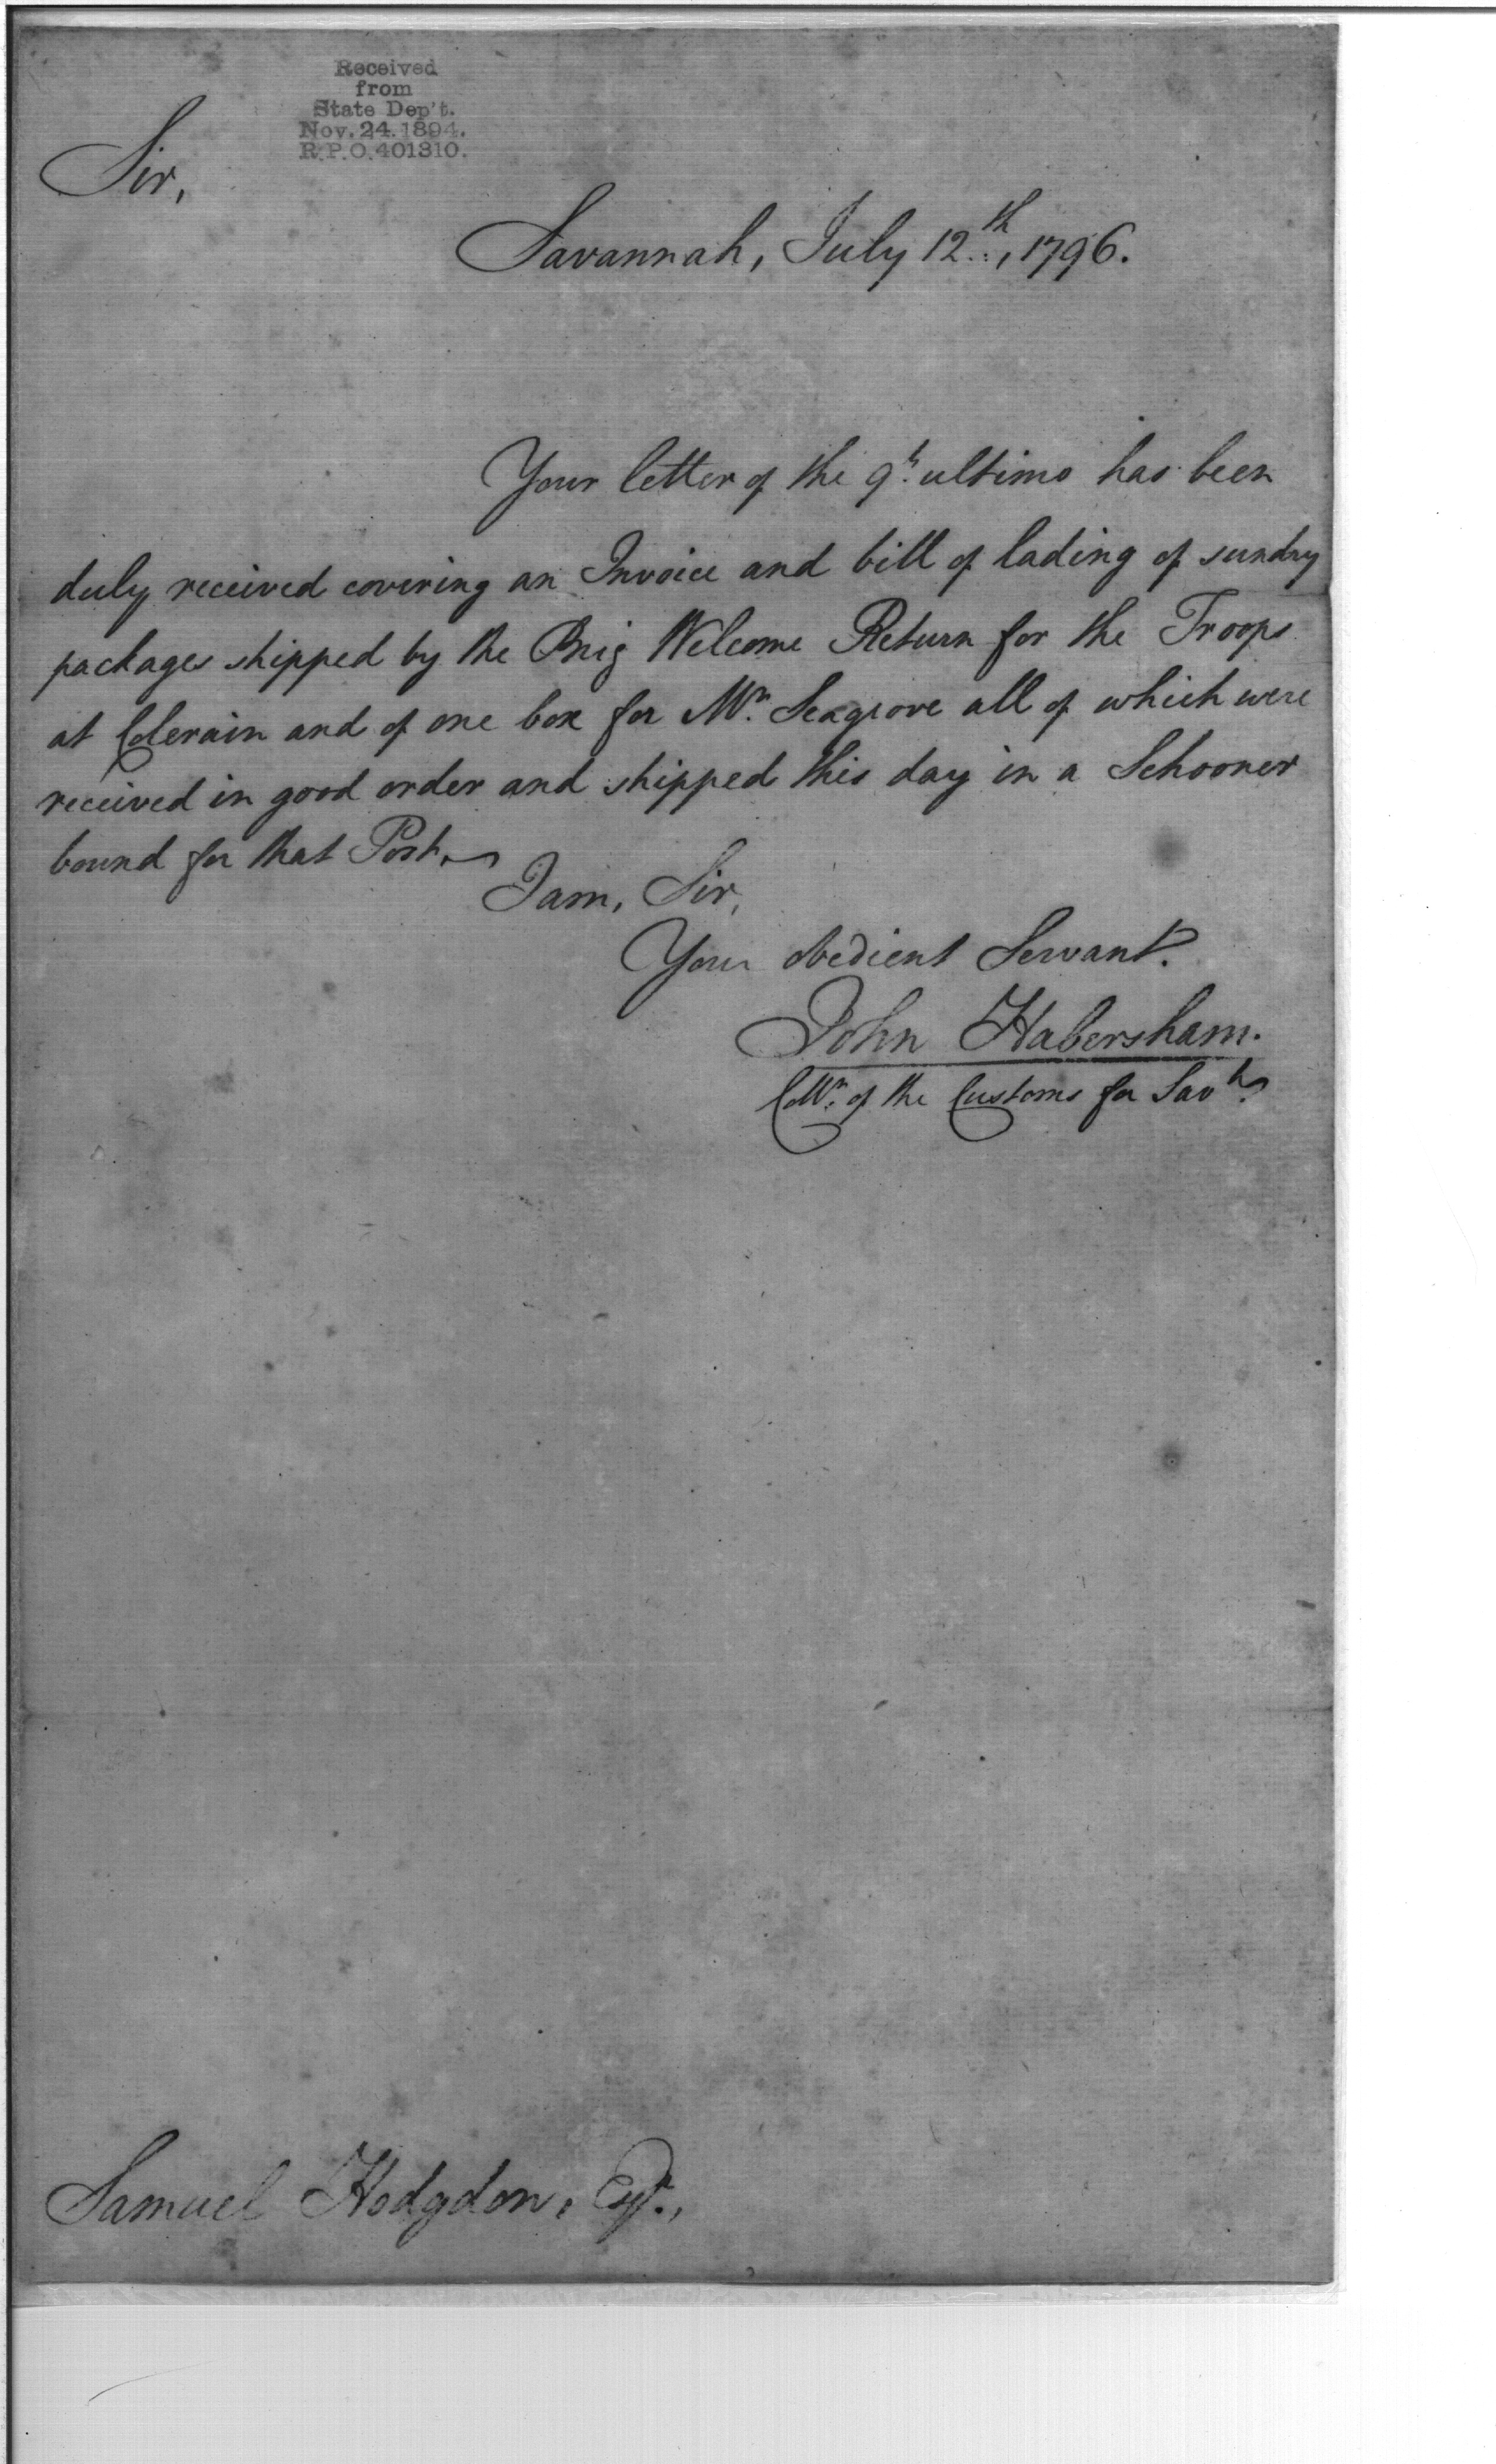 Received
from
State Dep't.
Nov. 24. 1894.
R.P.O. 401310.
Sir,
Savannah, July 12th, 1796.
Your letter of the 9h. ultimo has been
duly received covering an Invoice and bill of lading of sundry
packages shipped by the Brig Welcome Return for the Troops
at Colerain and of one box for Mr. Seagrove all of which were
received in good order and shipped this day in a Schooner
bound for that Post.
I am, Sir,
Your obedient Servant.
John Habersham.
Collr. of the Customs for Savh.
Samuel Hodgdon, Esqr.,